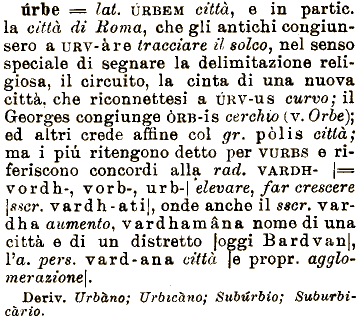 úrbe = lat. ÚRBEM città, e in partic.
la città di Roma, che gli antichi congiun-
sero a URV-àre tracciare il solco, nel senso
speciale di segnare la delimitazione reli-
giosa, il circuito, la cinta di una nuova
città. che riconnettesi a ÚRV-us curvo; il
Georges congiunge ÒRB-is cerchio (v. Orbe);
ed altri crede affine col gr. pòlis città;
ma i piú ritengono detto per VURBS e ri-
feriscono concordi alla rad. VARDH- |=
vordh-, vorb-, urb-| elevare, far crescere
|sscr. vardh-ati|, onde anche il sscr. var-
dha aumento, vardhamâna nome di una
città e di un distretto |oggi Bardvan|,
l'a. pers. vard-ana città |e propr. agglo-
merazione|.
Deriv. Urbàno; Urbicàno; Subúrbio; Suburbi-
càrio.